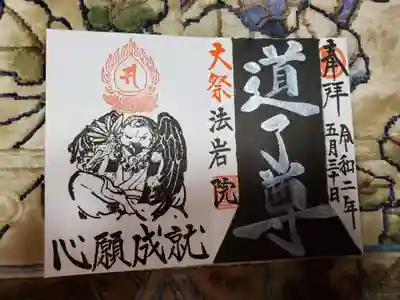 奉拝
令和二年
五月三十日
道了尊
大祭
法岩院
心願成就